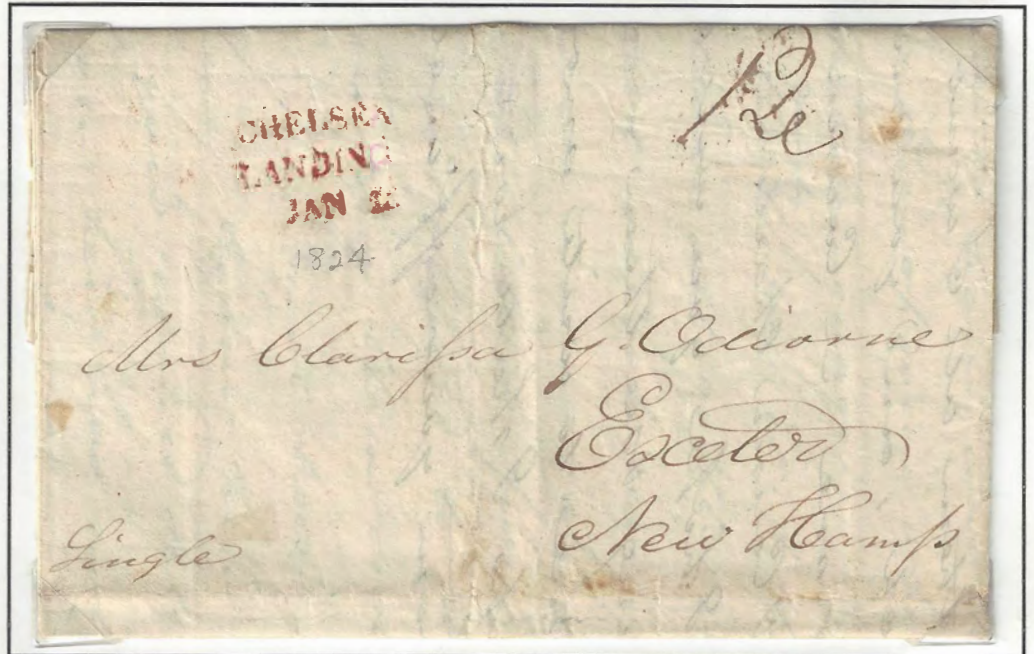 12c
CHELSEA
LANDING
JAN
1824
Mrs Clarissa G. Odiorne
Exeter
New Hamp
Single